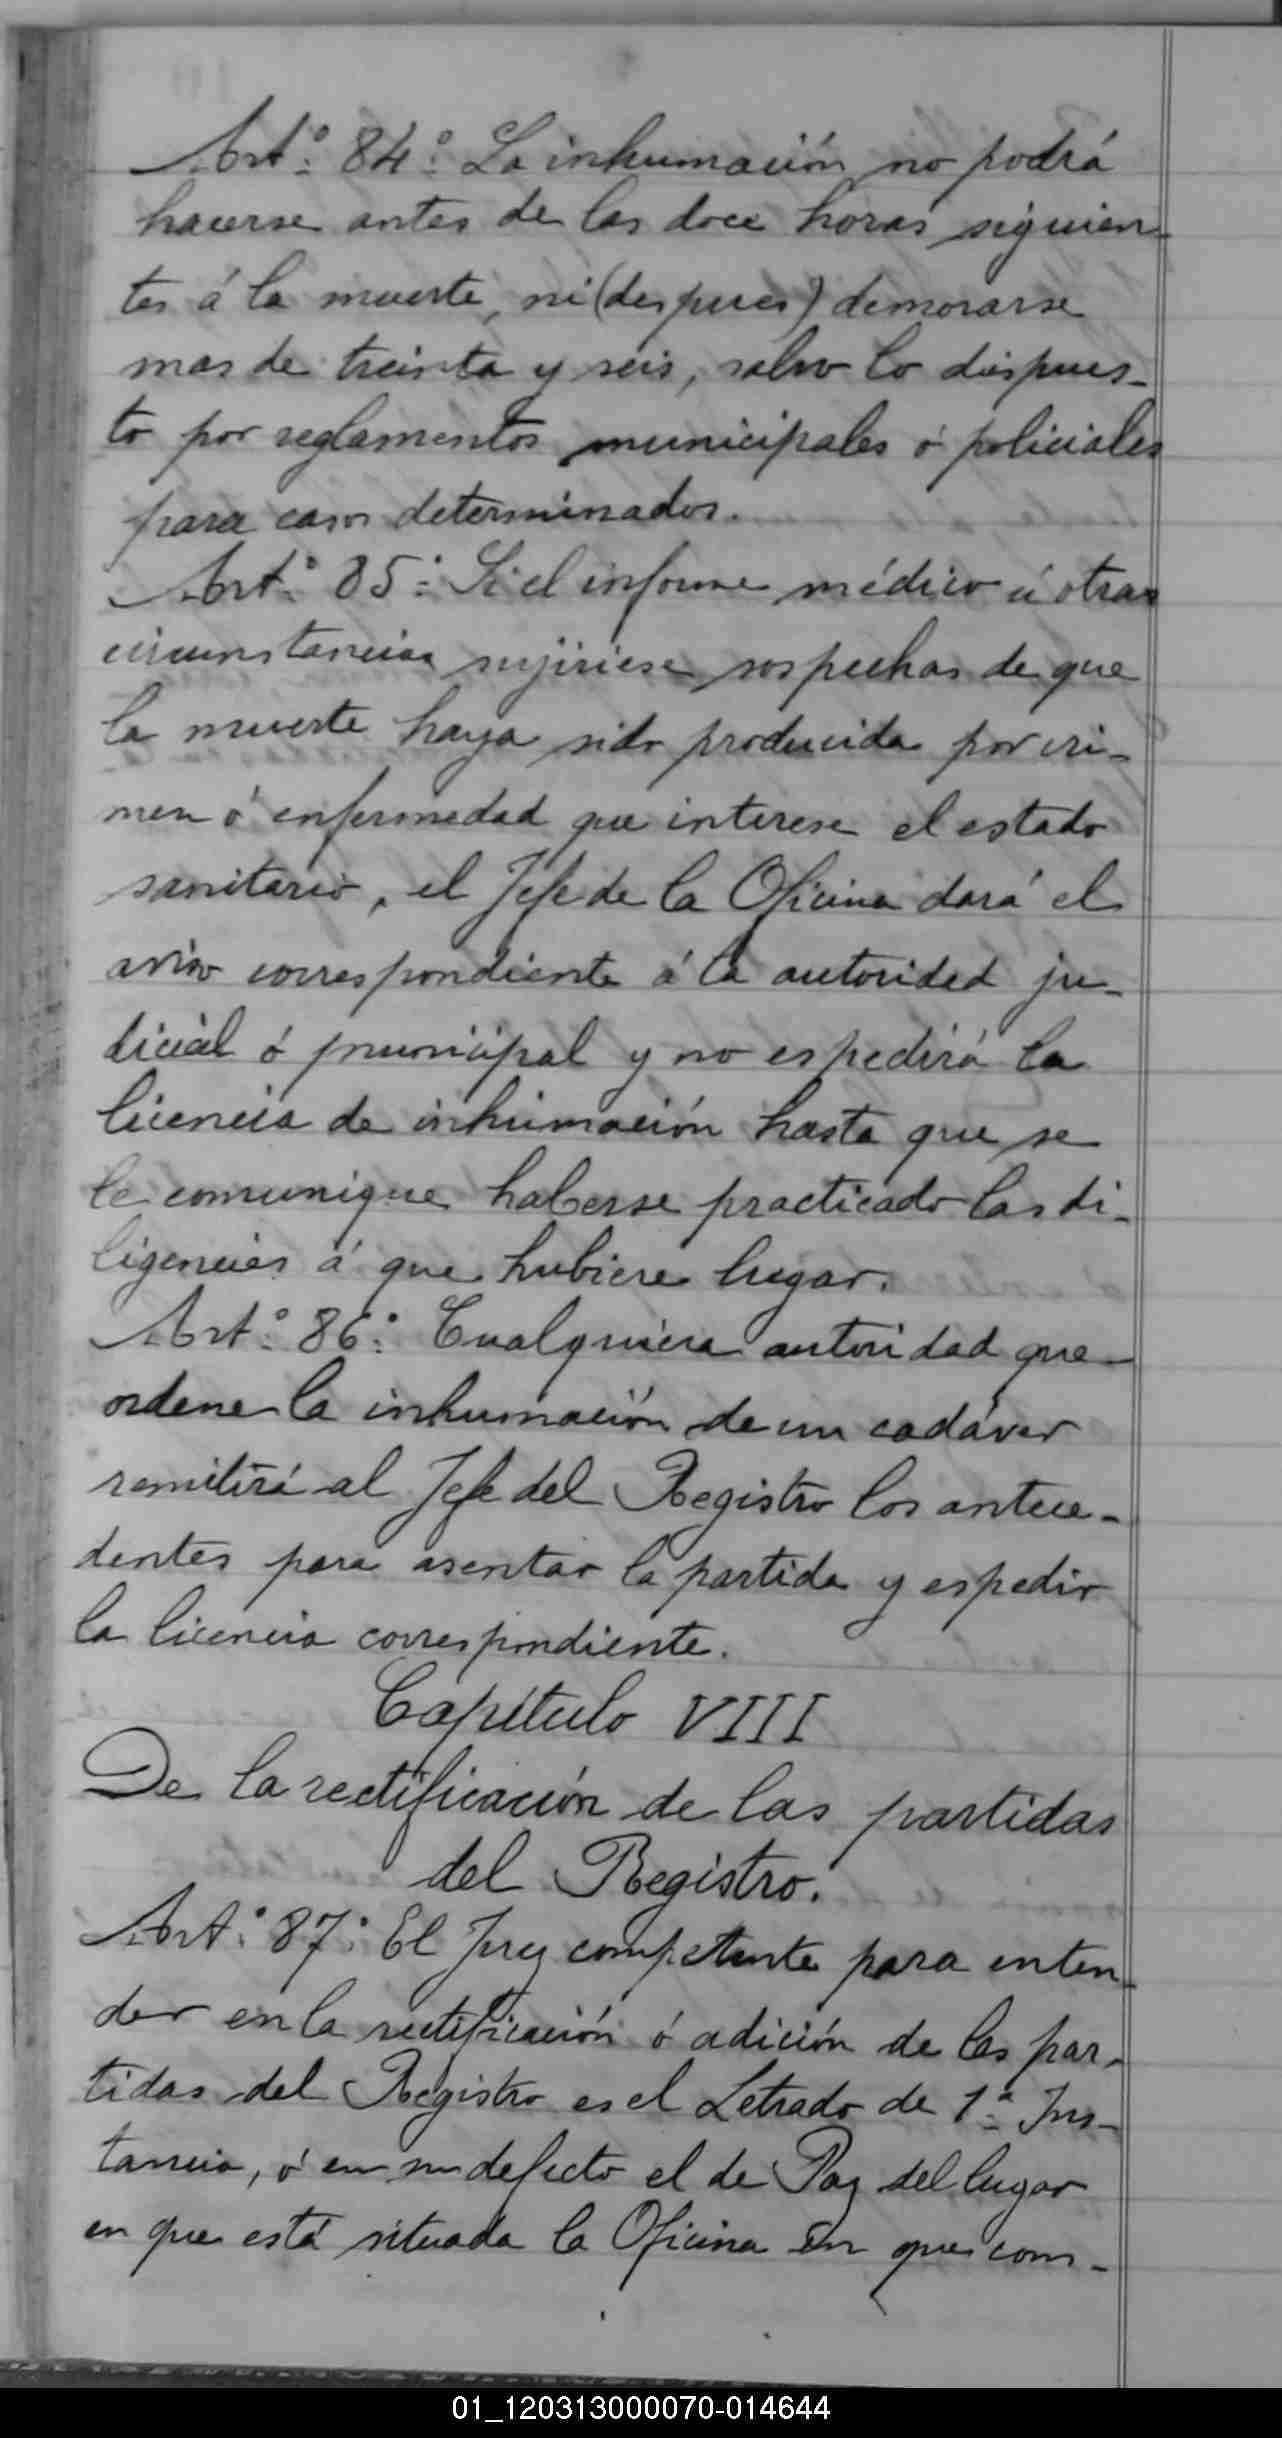 Art.º 84.º La inhumación no podrá
hacerse antes de las doce horas siguien-
tes á la muerte, ni (despues) demorarse
mas de treinta y seis, salvo lo dispues-
to por reglamentos municipales ó policiales
para casos determinados.
Art.º 85.º Si el informe médico ú otras
circunstancias sujiriese sospechas de que
la muerte haya sido producida por cri-
men ó enfermedad que interese el estado
sanitario, el Jefe de la Oficina dará el
aviso correspondiente á la autoridad ju-
dicial ó municipal y no espedirá la
licencia de inhumación hasta que se
le comunique haberse practicado las di-
ligencias á que hubiere lugar.
Art.º 86.º Cualquiera autoridad que
ordene la inhumación de un cadáver
remitirá al Jefe del Registro los antece-
dentes para asentar la partida y espedir
la licencia correspondiente.
Capítulo VIII
De la rectificación de las partidas
del Registro.
Art.º 87.º El Juez competente para enten-
der en la rectificación ó adición de las par-
tidas del Registro es el Letrado de 1.ª Ins-
tancia, ó en su defecto el de Paz del lugar
en que está situada la Oficina en que com-
01_120313000070-014644